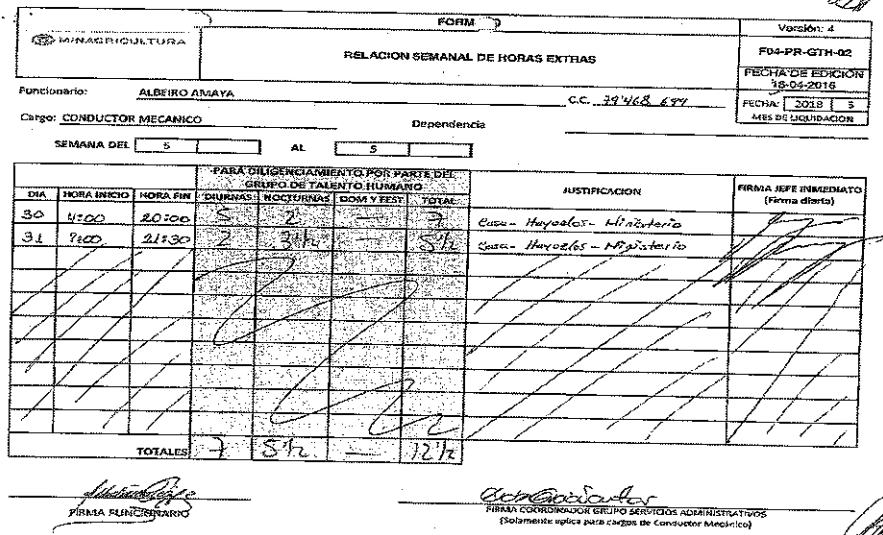 FORM
Versión: 4
MINAGRICULTURA
RELACION SEMANAL DE HORAS EXTRAS
F04-PR-GTH-02
FECHA DE EDICIÓN
18-04-2016
Funcionario: ALBEIRO AMAYA
C.C. 79'468.699
FECHA: 2018 5
MES DE LIQUIDACION
Cargo: CONDUCTOR MECANICO
Dependencia
SEMANA DEL 5 AL 5
PARA DILIGENCIAMIENTO POR PARTE DEL GRUPO DE TALENTO HUMANO
DIA HORA INICIO HORA FIN DIURNAS NOCTURNAS DOM Y FEST TOTAL JUSTIFICACION FIRMA JEFE INMEDIATO (Firma diaria)
30 4:00 20:00 5 2 — 7 Casa - Hayuelos - Ministerio
31 7:00 21:30 2 3 1/2 — 5 1/2 Casa - Hayuelos - Ministerio
TOTALES 7 5 1/2 — 12 1/2
FIRMA FUNCIONARIO
FIRMA COORDINADOR GRUPO SERVICIOS ADMINISTRATIVOS
(Solamente aplica para cargos de Conductor Mecánico)